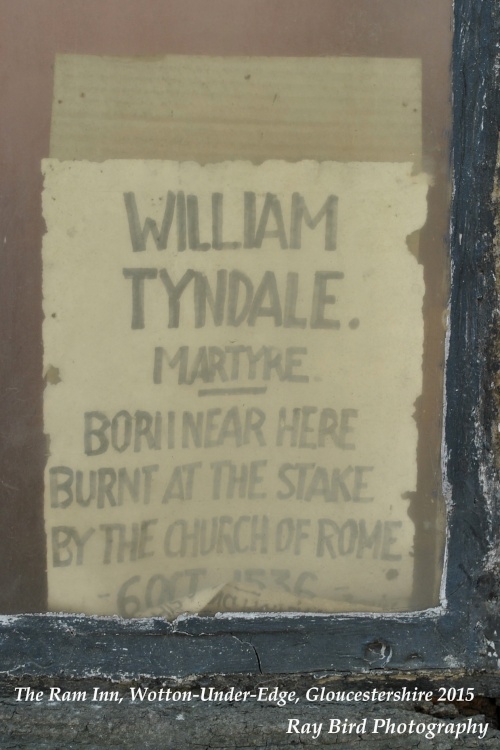 WILLIAM
TYNDALE.
MARTYRE
BORN NEAR HERE
BURNT AT THE STAKE
BY THE CHURCH OF ROME
- 6 OCT 1536 -
The Ram Inn, Wotton-Under-Edge, Gloucestershire 2015
Ray Bird Photography